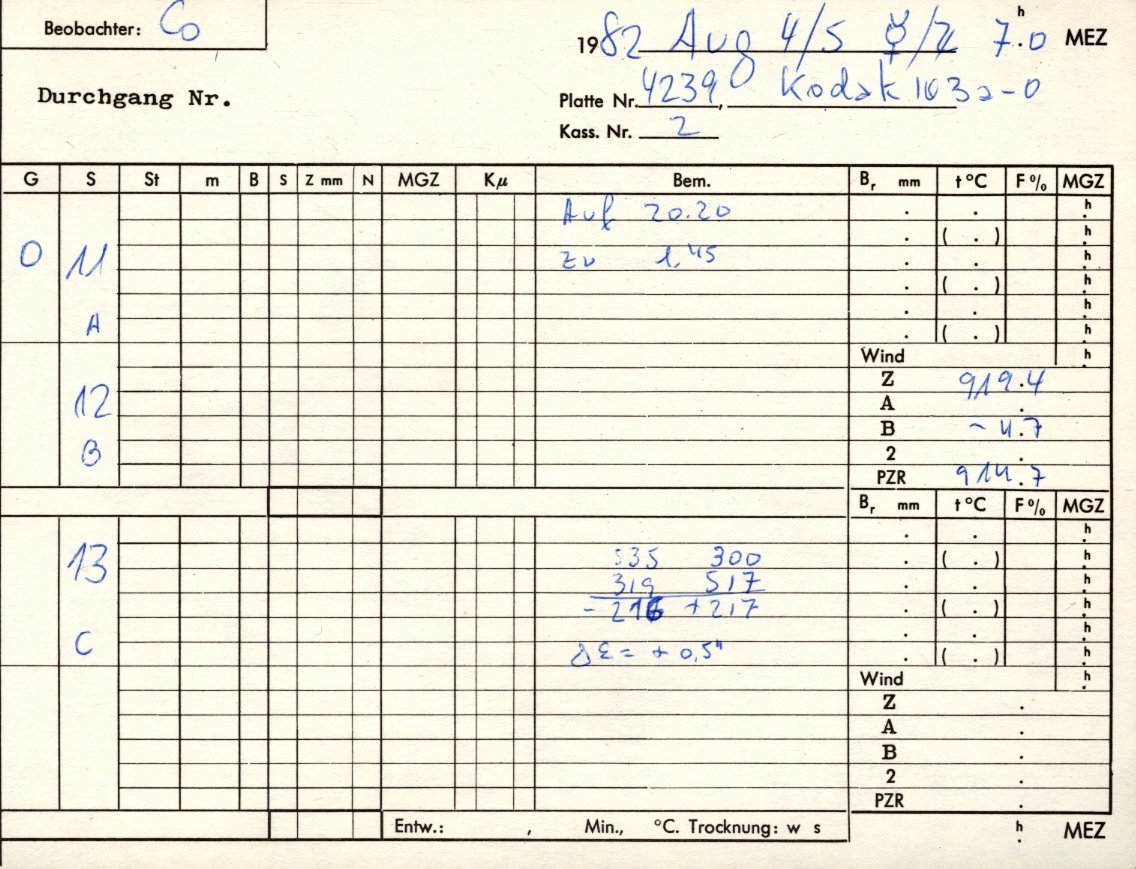 Beobachter: Co
1982 Aug 4/5 ☿/♃ 7.ʰ0 MEZ
Durchgang Nr.
Platte Nr. 4239, Kodak 103a-O
Kass. Nr. 2
G S St m B S Z mm N MGZ Kμ Bem. Bᵣ mm t °C F% MGZ
Auf 20.20 . . h
. ( . ) h
0 11 zu 1.45 . . h
. ( . ) h
. . h
A . ( . ) h
Wind h
Z 919.4
12 A .
B - 4.7
B 2 .
PZR 914.7
Bᵣ mm t °C F% MGZ
. . h
13 535 300 . ( . ) h
319 517 . . h
- 216 + 217 . ( . ) h
. . h
C Δε = + 0,5" . ( . ) h
Wind h
Z .
A .
B .
2 .
PZR .
Entw.: , Min., °C. Trocknung: w s h . MEZ